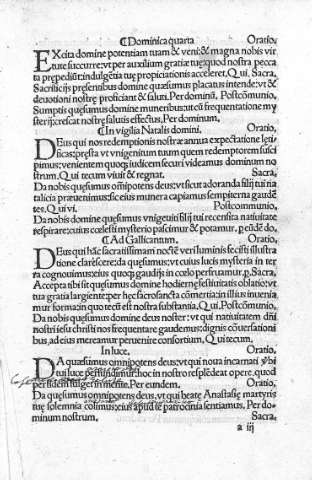 ¶Dominica quarta Oratio,
EXcita domine potentiam tuam & veni: & magna nobis vir
tute succurre: vt per auxilium gratiæ tuę: quod nostra pecca
ta prepediũt: indulgẽtia tuę propiciationis acceleret. Qui. Sacra,
Sacrificijs presẽtibus domine quęsumus placatus intende: vt &
deuotioni nostrę proficiant & saluti. Per dominũ. Postcõmunio,
Sumptis quęsumus domine muneribus: vt cũ frequentatione my
sterij: crescat nostrę salutis effectus. Per dominum.
¶In vigilia Natalis domini. Oratio,
DEus qui nos redemptionis nostræ annua expectatione lęti
ficas: pręsta vt vnigenitum tuum quem redemptorem susci
pimus; venientem quoq; iudicem securi videamus dominum no
strum. Qui tecum viuit & regnat. Sacra,
Da nobis quęsumus omĩpotens deus: vt sicut adoranda filij tui na
talicia præuenimus: sic eius munera capiamus sempiterna gaudẽ
tes. Qui vi. Postcommunio,
Da nobis domine quęsumus vnigeniti filij tui recensita natiuitate
respirare: cuius cœlesti mysterio pascimur & potamur. p eũdẽ do,
¶Ad Gallicantum. Oratio,
DEus qui hãc sacratissimam noctẽ veri luminis fecisti illustra
tione clarescere: da quęsumus: vt cuius lucis mysteria in ter
ra cognouimus: eius quoq; gaudijs in cœlo perfruamur. p. Sacra,
Accepta tibi sit quęsumus domine hodiernę festiuitatis oblatio: vt
tua gratia largiente: per hęc sacrosancta cõmertia: in illius inuenia
mur forma: in quo tecũ est nostra substantia. Qui. Postcõmunio,
Da nobis quęsumus domine deus noster: vt qui natiuitatem dñi
nostri iesu christi nos frequentare gaudemus: dignis cõuersationi
bus, ad eius mereamur peruenire consortium. Qui tecum.
In luce. Oratio,
DA quæsumus omnipotens deus: vt qui noua incarnati v̓bi
tui luce perfundimur: hoc in nostro resplẽdeat opere, quod
per fidem fulget in mente. Per eundem. Oratio,
Da quęsumus omnipotens deus, vt qui beatę Anastasię martyris
tuę solemnia colimus: eius apud te patrocinia sentiamus. Per do-
minum nostrum. Sacra,
a iij